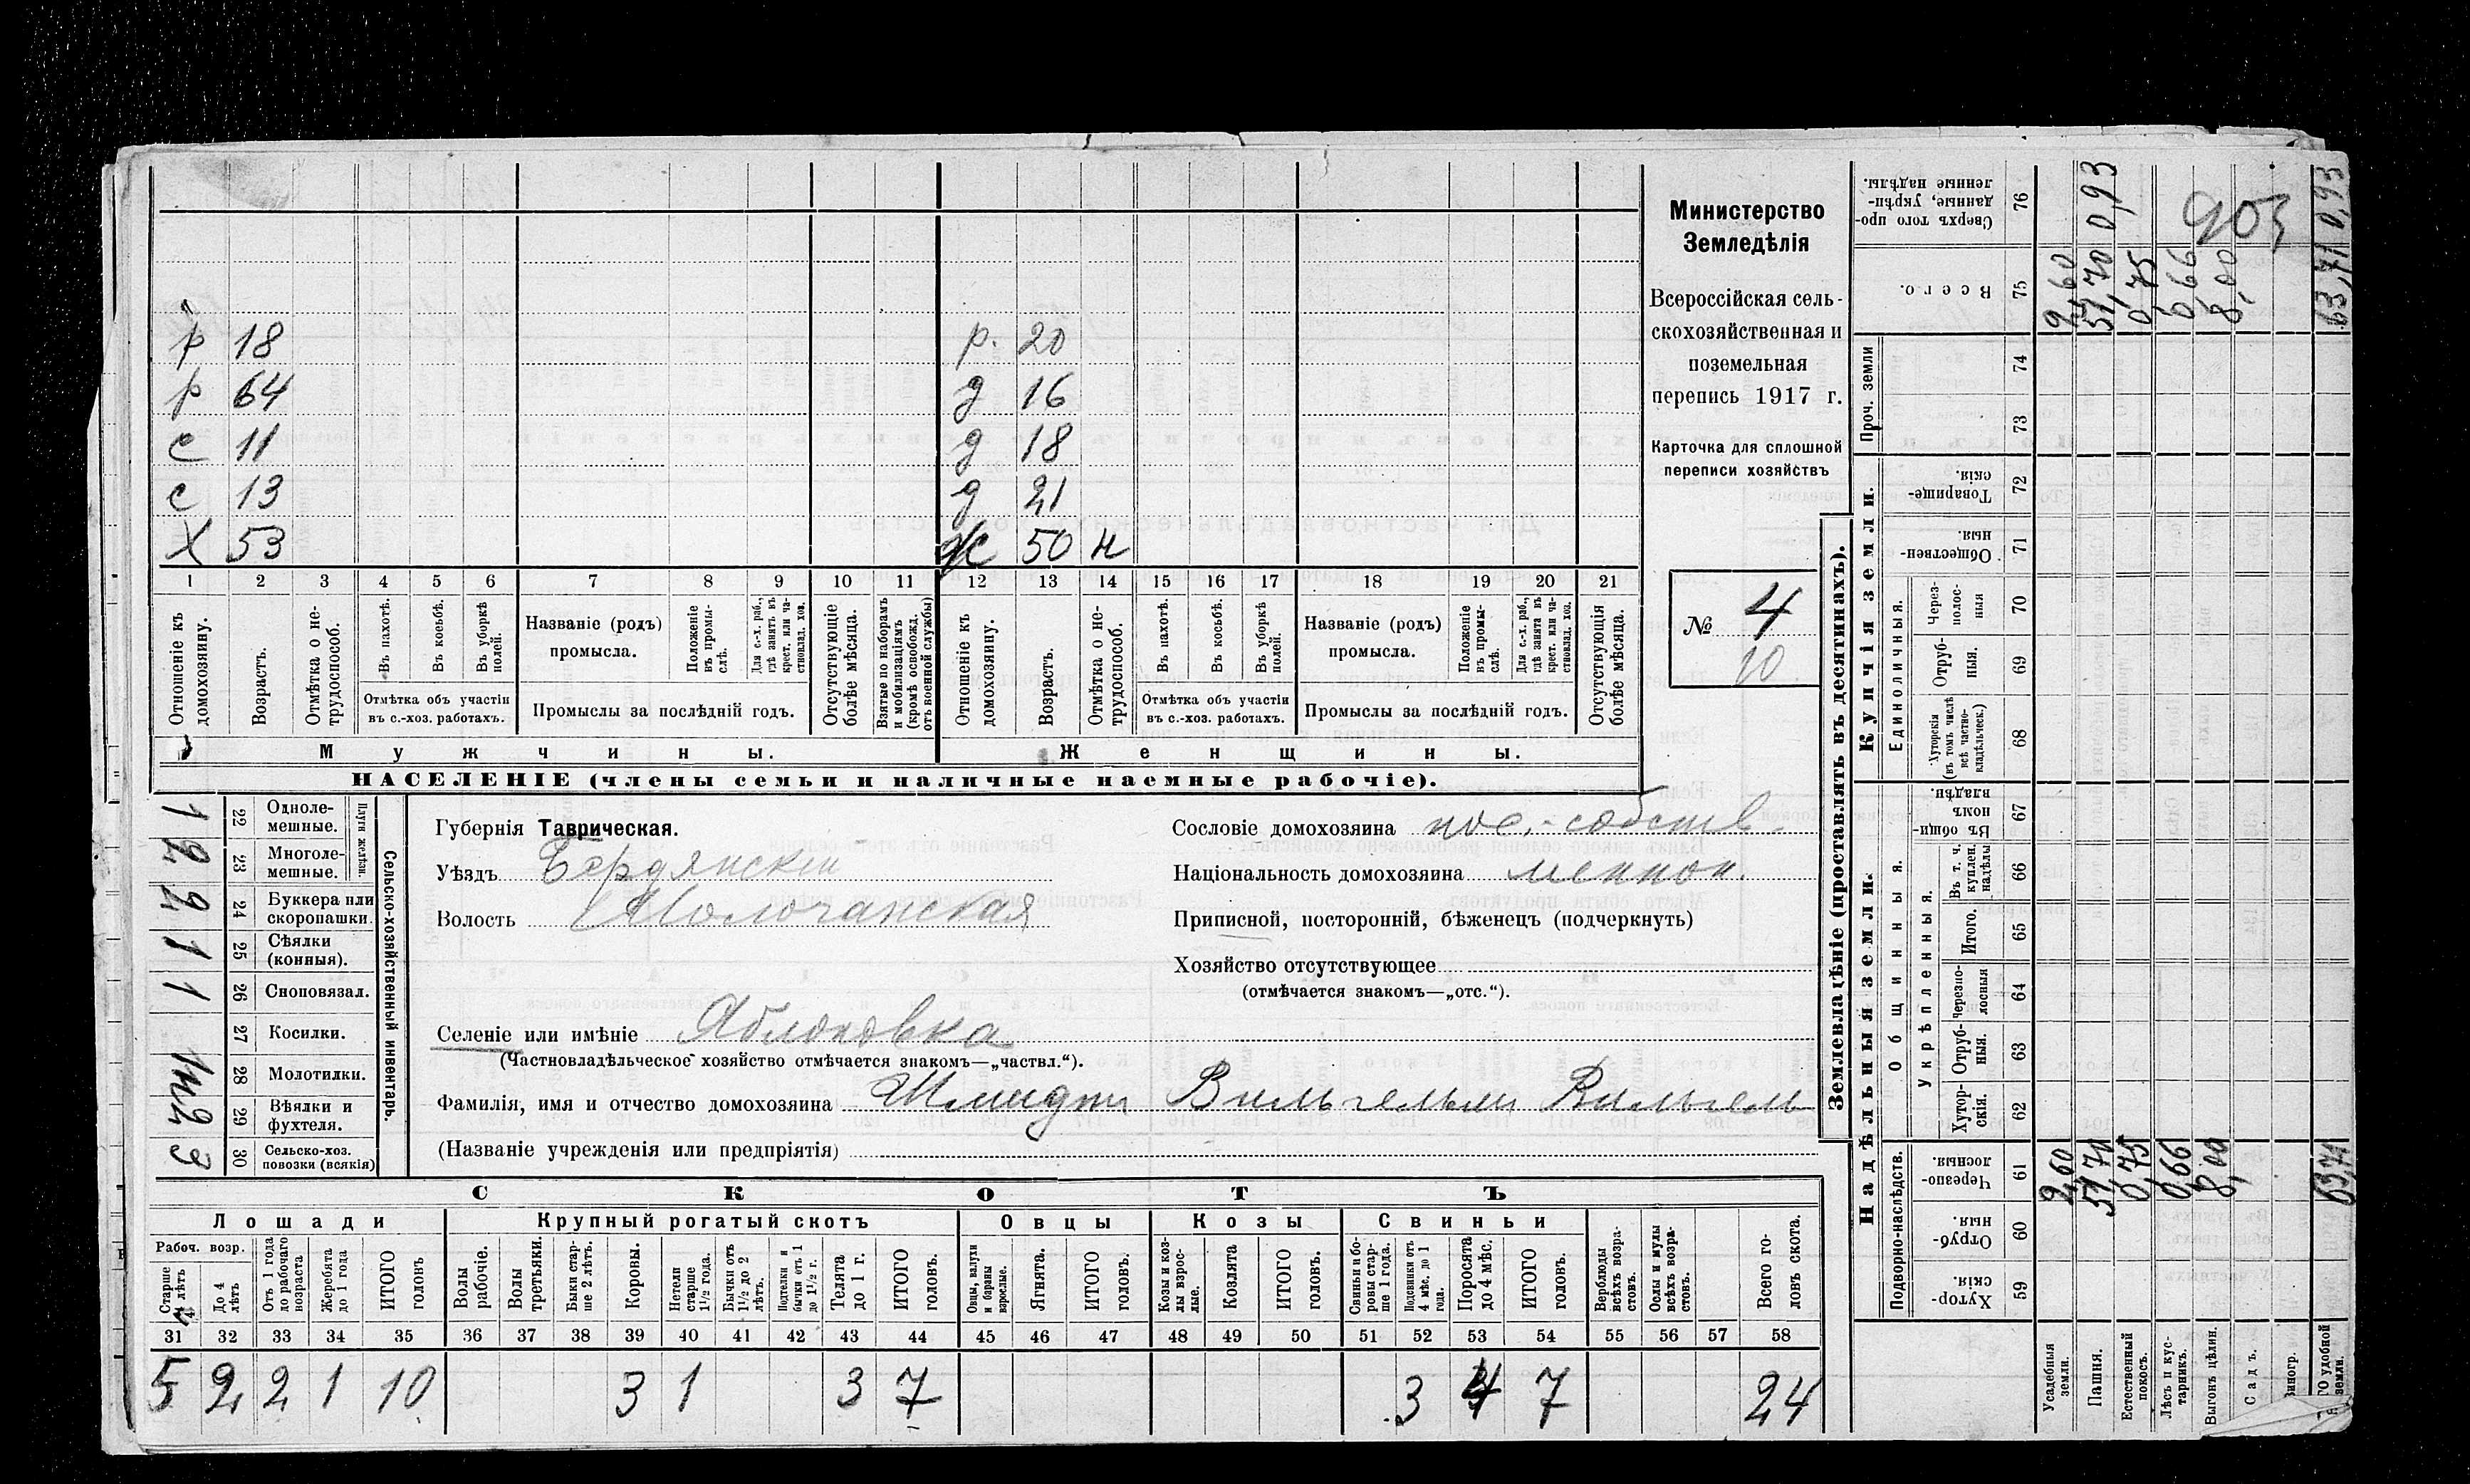 Министерство
Земледѣлія
Всероссійская сель-
скохозяйственная и
поземельная
перепись 1917 г.
Карточка для сплошной
переписи хозяйствъ
№ 4
10
р 18 р. 20
р 64 д 16
с 11 д 18
с 13 д 21
Х 53 ж 50 н
1 2 3 4 5 6 7 8 9 10 11 12 13 14 15 16 17 18 19 20 21
Отношеніе къ домохозяину.
Возрастъ.
Отмѣтка о не-трудоспособ.
Въ пахотѣ.
Въ косьбѣ.
Въ уборкѣ полей.
Отмѣтка объ участіи
въ с.-хоз. работахъ.
Названіе (родъ)
промысла.
Положеніе въ промы-слѣ.
Для с.-х. раб., гдѣ занятъ въ крест. или ча-стновлад. хоз.
Промыслы за послѣдній годъ.
Отсутствующіе болѣе мѣсяца.
Взятые по наборамъ и мобилизаціямъ (кромѣ освобожд. отъ военной службы)
Отношеніе къ домохозяину.
Возрастъ.
Отмѣтка о не-трудоспособ.
Въ пахотѣ.
Въ косьбѣ.
Въ уборкѣ полей.
Отмѣтка объ участіи
въ с.-хоз. работахъ.
Названіе (родъ)
промысла.
Положеніе въ промы-слѣ.
Для с.-х. раб., гдѣ занята въ крест. или ча-стновлад. хоз.
Промыслы за послѣдній годъ.
Отсутствующія болѣе мѣсяца.
Мужчины. Женщины.
НАСЕЛЕНІЕ (члены семьи и наличные наемные рабочіе).
Сельско-хозяйственный инвентарь.
Плуги желѣзн.
1 22 Одноле-мешные.
2 23 Многоле-мешные.
2 24 Буккера или скоропашки.
1 25 Сѣялки (конныя).
1 26 Сноповязал.
27 Косилки.
28 Молотилки.
29 Вѣялки и фухтеля.
3 30 Сельско-хоз. повозки (всякія)
Губернія Таврическая.
Уѣздъ Бердянскій
Волость Молочанская
Сословіе домохозяина пос.-собств.
Національность домохозяина меннон.
Приписной, посторонній, бѣженецъ (подчеркнуть)
Хозяйство отсутствующее
(отмѣчается знакомъ—„отс.“).
Селеніе или имѣніе Яблоновка
(Частновладѣльческое хозяйство отмѣчается знакомъ—„частвл.“).
Фамилія, имя и отчество домохозяина Шмидтъ Вильгельмъ Вильгельм
(Названіе учрежденія или предпріятія)
СКОТЪ
Лошади Крупный рогатый скотъ Овцы Козы Свиньи
Рабоч. возр.
Старше 4 лѣтъ
До 4 лѣтъ
Отъ 1 года до рабочаго возраста
Жеребята до 1 года
ИТОГО головъ
Волы рабочіе.
Волы третьяки.
Быки стар-ше 2 лѣтъ.
Коровы.
Нетели старше 1½ года.
Бычки отъ 1½ до 2 лѣтъ.
Подтелки и бычки отъ 1 до 1½ г.
Телята до 1 г.
ИТОГО головъ.
Овцы, валухи и бараны взрослые.
Ягнята.
ИТОГО головъ.
Козы и коз-лы взрос-лые.
Козлята
ИТОГО головъ.
Свиньи и бо-ровы стар-ше 1 года.
Подсвинки отъ 4 мѣс. до 1 года.
Поросята до 4 мѣс.
ИТОГО головъ.
Верблюды всѣхъ возра-стовъ.
Ослы и мулы всѣхъ возра-стовъ.
Всего го-ловъ скота.
31 32 33 34 35 36 37 38 39 40 41 42 43 44 45 46 47 48 49 50 51 52 53 54 55 56 57 58
5 2 2 1 10 3 1 3 7 3 4 7 24
Землевладѣніе (проставлять въ десятинахъ).
Купчія земли.
Надѣльныя земли.
Проч. земли
Единоличныя.
Общинныя.
Укрѣпленныя.
Подворно-наслѣдств.
Сверхъ того про-данные, укрѣп-ленные надѣлы. 76
903
Всего. 75 2,60 51,70 0,93 0,75 0,66 8,00 63,71 0,93
74
73
Товарище-скія 72
Обществен-ныя. 71
Через-полос-ныя 70
Отруб-ныя. 69
Хуторскія (въ томъ числѣ всѣ частно-владѣльческ.) 68
Въ общи-номъ владѣн. 67
Въ т. ч. куплен. надѣлы 66
Итого. 65
Черезпо-лосныя 64
Отруб-ныя. 63
Хутор-скія. 62
Черезпо-лосныя. 61 2,60 51,70 0,75 0,66 8,00 63,71
Отруб-ныя. 60
Хутор-скія. 59
Усадебныя земли.
Пашня.
Естественный покосъ.
Лѣсъ и кус-тарникъ.
Выгонъ цѣлин.
Садъ.
Виногр.
ГО удобной земли.